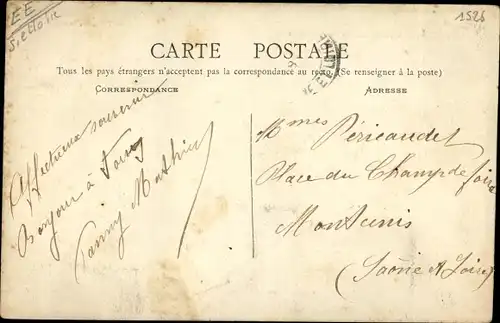 EE
S et Loire
1526
CARTE POSTALE
Tous les pays étrangers n'acceptent pas la correspondance au recto (Se renseigner à la poste)
CORRESPONDANCE
ADRESSE
Affectueux souvenir
Bonjour à Tous
Fanny Mathieu
Mmes Péricaudet
Place du Champ de foire
Montcenis
(Saône & Loire)